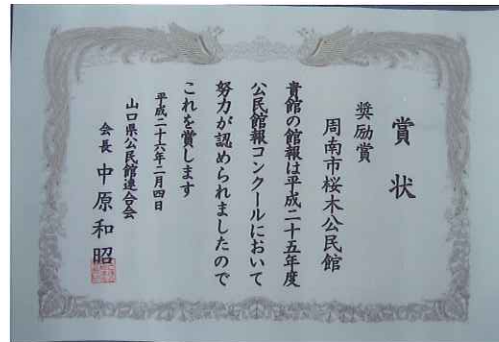 賞状
奨励賞
周南市桜木公民館
貴館の館報は平成二十五年度
公民館報コンクールにおいて
努力が認められましたので
これを賞します
平成二十六年二月四日
山口県公民館連合会
会長 中原和昭